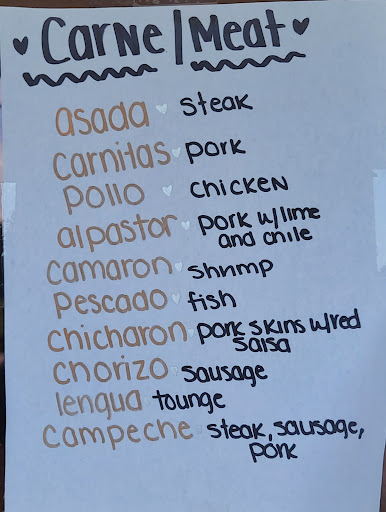 Carne | Meat
asada steak
Carnitas pork
pollo chicken
alpastor pork w/lime
and chile
camaron shrimp
pescado fish
chicharon pork skins w/red
salsa
chorizo sausage
lengua tounge
campeche steak, sausage,
pork